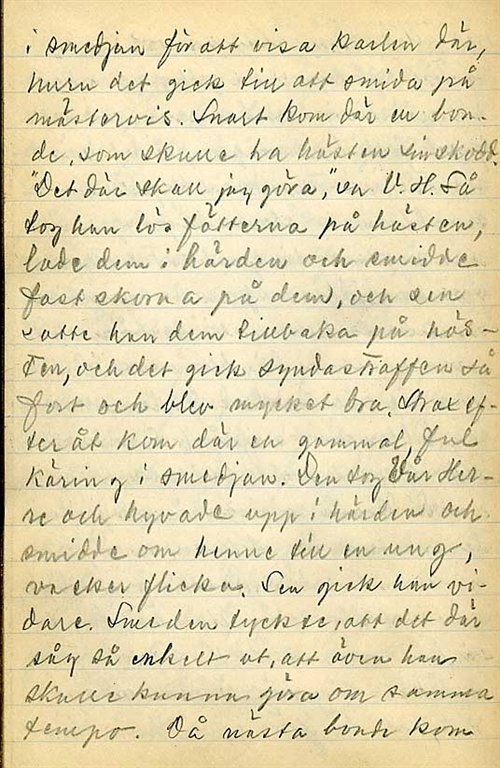 i smedjan för att visa karlen där,
huru det gick till att smida på
mästervis. Snart kom där en bon-
de, som skulle ha hästen sin skodd.
"Det där skall jag göra," sa V. H. Så
tog han lös fötterna på hästen,
lade dem i härden och smidde
fast skorna på dem, och sen
satte han dem tillbaka på häs-
ten, och det gick syndastraffen så
fort och blev mycket bra. Strax ef-
teråt kom där en gammal, ful
käring i smedjan. Den tog Vår Her-
re och hyvade upp i härden och
smidde om henne till en ung,
vacker flicka. Sen gick han vi-
dare. Smeden tyckte, att det där
såg så enkelt ut, att även han
skulle kunna göra om samma
tempo. Då nästa bonde kom